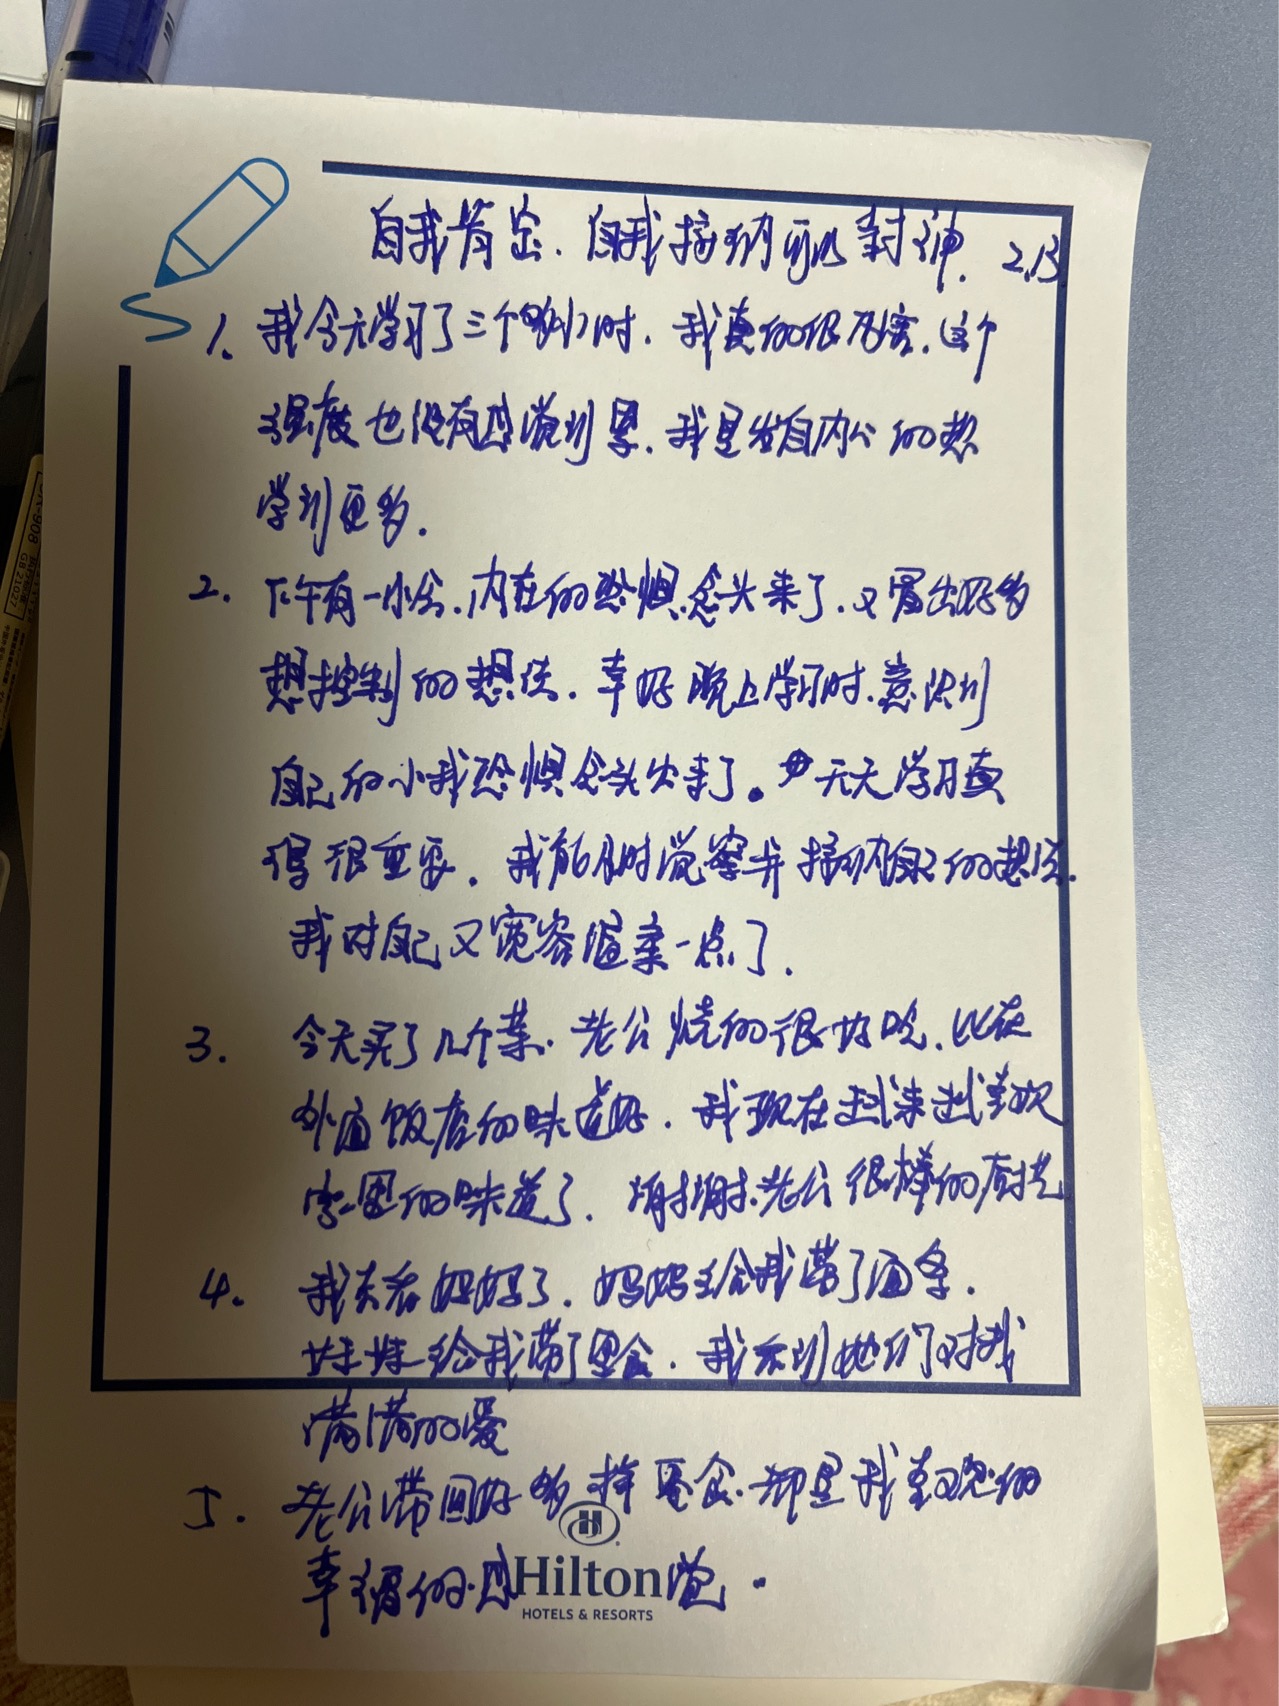 自我肯定.自我接纳可以封神. 2.13
1. 我今天学习了三个多小时.我真的很厉害.这个
强度也没有感觉到累.我是发自内心的想
学到更多.
2. 下午有一小会.内在的恐惧念头来了.又冒出好多
想控制的想法.幸好晚上学习时.意识到
自己的小我恐惧念头出来了。天天学习真
得很重要.我能及时觉察并接纳自己的想法.
我对自己又宽容温柔一点了.
3. 今天买了几个菜.老公烧的很好吃.比在
外面饭店的味道好.我现在越来越喜欢
家里的味道了.谢谢老公很棒的厨艺
4. 我去看妈妈了.妈妈给我带了面条.
妹妹给我带了零食.我看到她们对我
满满的爱
5. 老公带回好多样零食.都是我喜欢的
幸福的感觉.
Hilton
HOTELS & RESORTS